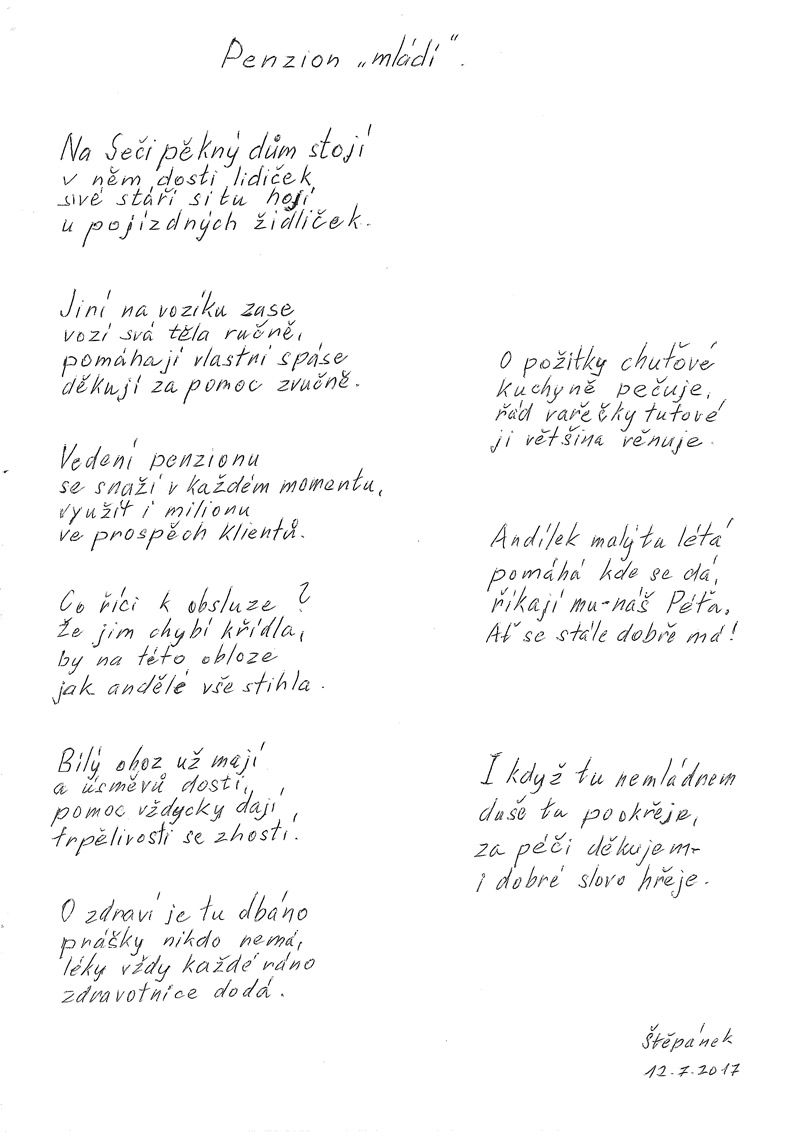 Penzion „mládí“.
Na Seči pěkný dům stojí
v něm dosti lidiček,
své stáří si tu hojí
u pojízdných židliček.
Jiní na vozíku zase
vozí svá těla ručně,
pomáhají vlastní spáse
děkují za pomoc zvučně.
Vedení penzionu
se snaží v každém momentu,
využít i milionu
ve prospěch klientů.
Co říci k obsluze?
Že jim chybí křídla,
by na této obloze
jak andělé vše stihla.
Bílý oboz už mají
a úsměvů dosti,
pomoc vždycky dají,
trpělivosti se zhostí.
O zdraví je tu dbáno
prášky nikdo nemá,
léky vždy každé ráno
zdravotnice dodá.
O požitky chuťové
kuchyně pečuje,
řád vařečky tuťové
ji většina věnuje.
Andílek malý tu létá
pomáhá kde se dá,
říkají mu-náš Péťa,
Ať se stále dobře má!
I když tu nemládnem
duše tu pookřeje,
za péči děkujem-
i dobré slovo hřeje.
Štěpánek
12.7.2017